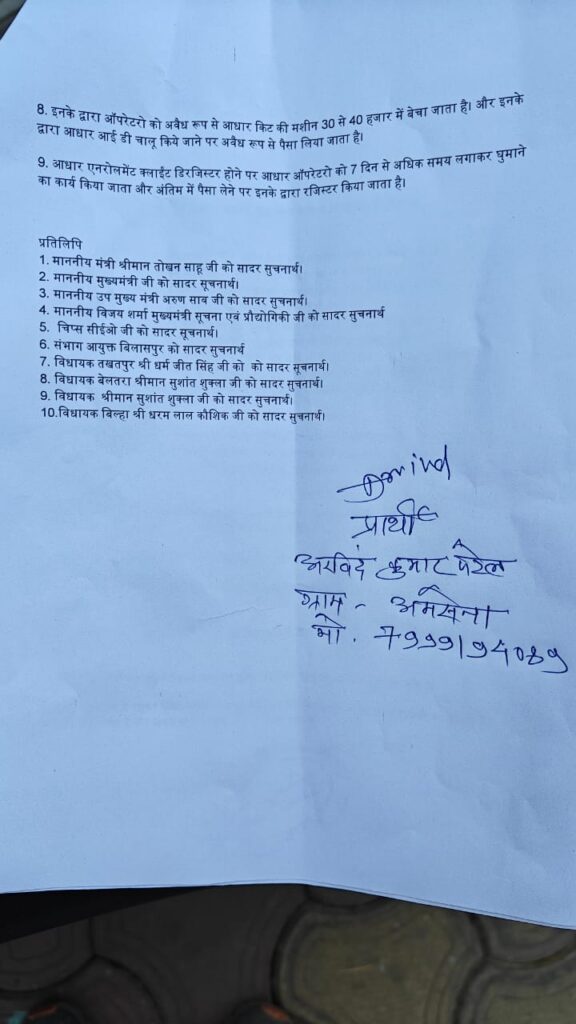 8. इनके द्वारा ऑपरेटरो को अवैध रूप से आधार किट की मशीन 30 से 40 हजार में बेचा जाता है। और इनके
द्वारा आधार आई डी चालू किये जाने पर अवैध रूप से पैसा लिया जाता है।
9. आधार एनरोलमेंट क्लाईंट डिरजिस्टर होने पर आधार ऑपरेटरो को 7 दिन से अधिक समय लगाकर घुमाने
का कार्य किया जाता और अंतिम में पैसा लेने पर इनके द्वारा रजिस्टर किया जाता है।
प्रतिलिपि
1. माननीय मंत्री श्रीमान तोखन साहू जी को सादर सुचनार्थ।
2. माननीय मुख्यमंत्री जी को सादर सूचनार्थ।
3. माननीय उप मुख्य मंत्री अरुण साव जी को सादर सुचनार्थ।
4. माननीय विजय शर्मा मुख्यमंत्री सूचना एवं प्रौद्योगिकी जी को सादर सुचनार्थ
5. चिप्स सीईओ जी को सादर सूचनार्थ।
6. संभाग आयुक्त बिलासपुर को सादर सुचनार्थ
7. विधायक तखतपुर श्री धर्म जीत सिंह जी को को सादर सूचनार्थ।
8. विधायक बेलतरा श्रीमान सुशांत शुक्ला जी को सादर सुचनार्थ।
9. विधायक श्रीमान सुशांत शुक्ला जी को सादर सुचनार्थ।
10.विधायक बिल्हा श्री धरम लाल कौशिक जी को सादर सुचनार्थ।
प्रार्थी
अरविंद कुमार पटेल
ग्राम - अमसेना
मो. 7999194089